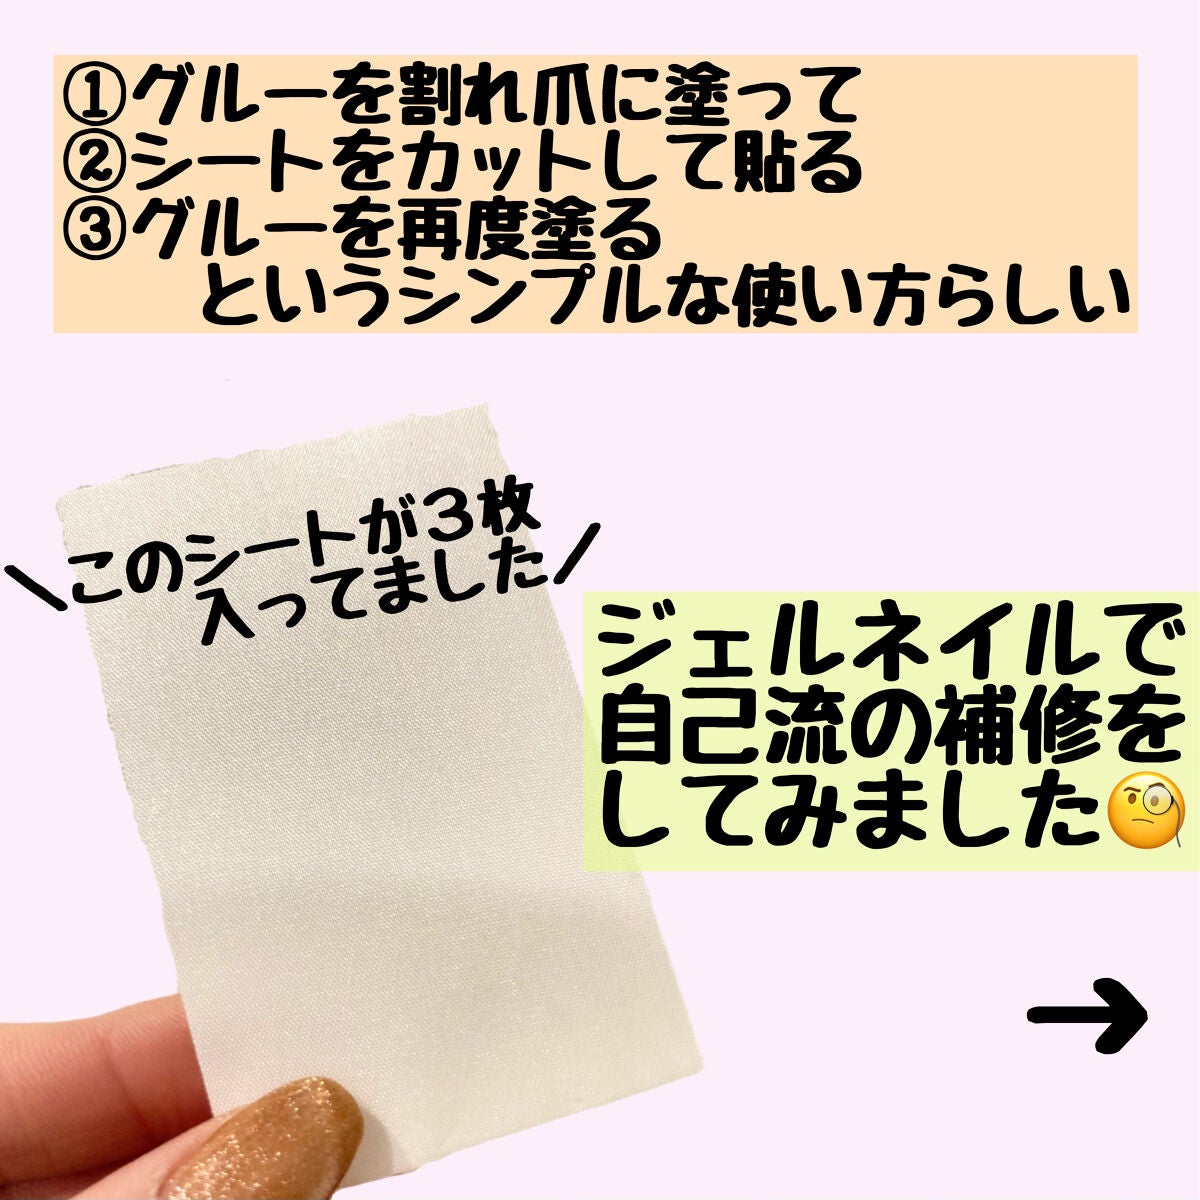 ①グルーを割れ爪に塗って
②シートをカットして貼る
③グルーを再度塗る
というシンプルな使い方らしい
\このシートが3枚
入ってました/
ジェルネイルで
自己流の補修を
してみました🧐
→